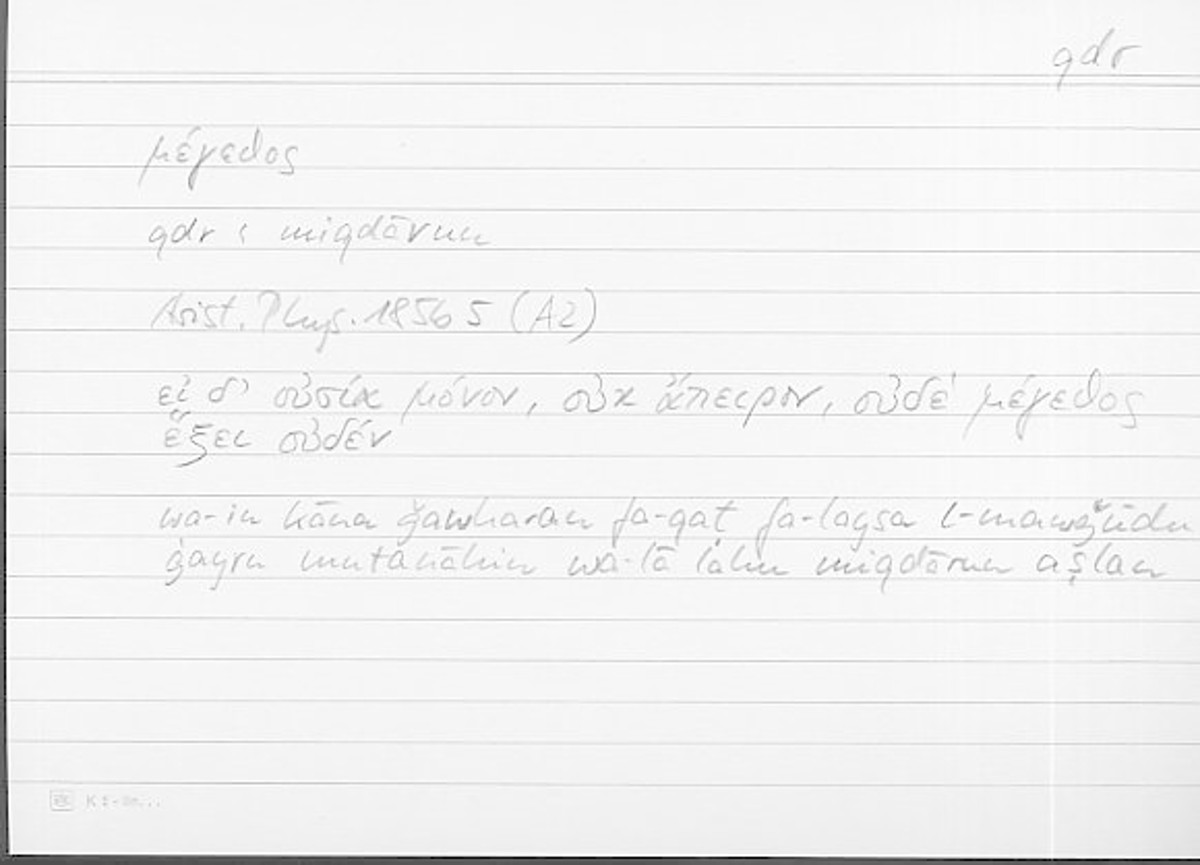 qdr
μέγεθος
qdr : miqdārun
Arist. Phys. 185b5 (A2)
εἰ δ' οὐσία μόνον, οὐκ ἄπειρον, οὐδὲ μέγεθος
ἕξει οὐδέν
wa-in kāna ǧawharan fa-qaṭ fa-laysa l-mawǧūdu
ġayra mutanāhin wa-lā lahu miqdārun aṣlan